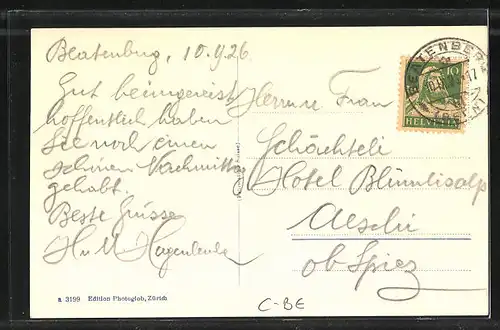 Beatenberg, 10.9.26
Gut heimgereist
hoffentlich haben
Sie noch einen
schönen Nachmittag
gehabt.
Beste Grüsse
H u M
Herrn u. Frau
Schächteli
Hotel Blümlisalp
Aeschi
ob Spiez
BEATENBERG
10
HELVETIA
a 3199 Edition Photoglob, Zürich
C-BE